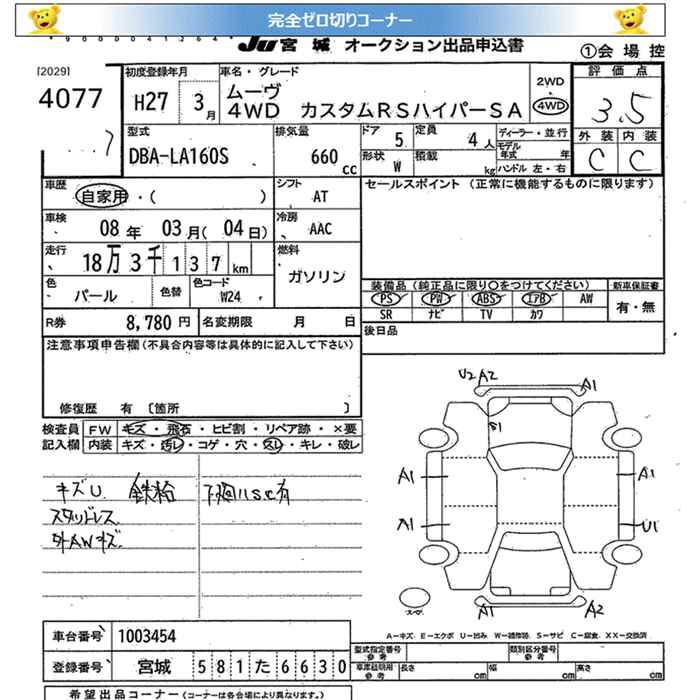 完全ゼロ切りコーナー
*9000041264*
JU 宮城 オークション出品申込書
①会場控
[2029]
4077
初度登録年月
H27 3月
車名・グレード
ムーヴ
4WD カスタムRSハイパーSA
2WD
4WD
評価点
3.5
外装 内装
C C
型式
DBA-LA160S
排気量
660 cc
ドア 5
定員 4人
形状 W
積載 kg
ディーラー・並行
モデル年式 年
ハンドル 左・右
車歴
自家用・( )
シフト
AT
セールスポイント (正常に機能するものに限ります)
車検
08年 03月(04日)
冷房
AAC
走行
18万3千137km
燃料
ガソリン
色
パール
色替
色コード
W24
装備品(純正品に限り○をつけてください)
新車保証書
PS PW ABS エアB AW
SR ナビ TV カワ
有・無
R券 8,780円
名変期限 月 日
後日品
注意事項申告欄(不具合内容等は具体的に記入して下さい)
修復歴 有 〔箇所 〕
検査員記入欄
FW キズ・飛石・ヒビ割・リペア跡・×要
内装 キズ・汚レ・コゲ・穴・スレ・キレ・破レ
キズU. 鉄粉 下廻りSC有
スタッドレス
外AWキズ
U2 A2
A1
S1
A1
A1
A1
U1
A1
A2
スペア
A-キズ E-エクボ U-凹み W-補修跡 S-サビ C-腐食 XX-交換済
車台番号 1003454
登録番号 宮城 581た6630
型式指定番号 参考
類別区分番号 参考
車庫証明用 参考
長さ cm 幅 cm 高さ cm
希望出品コーナー(コーナーは各会場により異なります。)